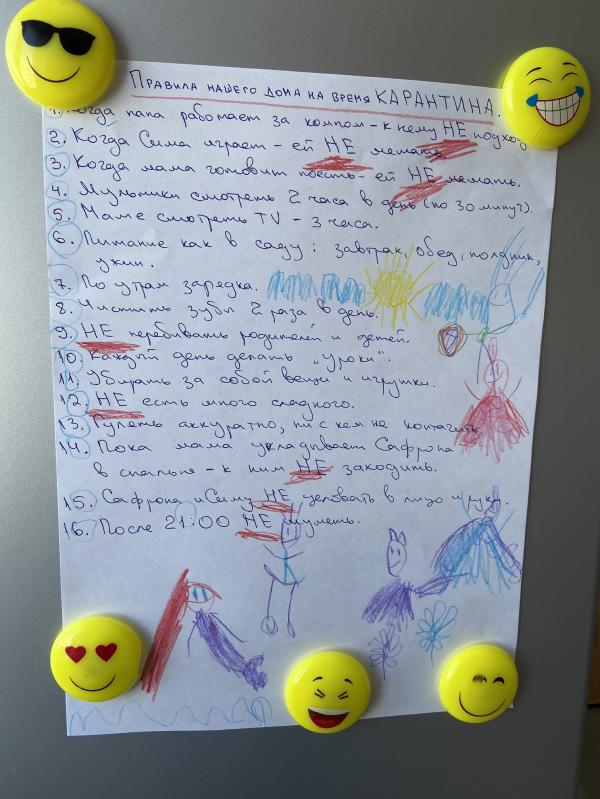 Правила нашего дома на время КАРАНТИНА.
1. Когда папа работает за компом - к нему НЕ подход
2. Когда Сима играет - ей НЕ мешать.
3. Когда мама готовит поесть - ей НЕ мешать.
4. Мультики смотреть 2 часа в день (по 30 минут).
5. Маме смотреть TV - 3 часа.
6. Питание как в саду: завтрак, обед, полдник,
ужин.
7. По утрам зарядка.
8. Чистить зубы 2 раза в день.
9. НЕ перебивать родителей и детей.
10. Каждый день делать „уроки“.
11. Убирать за собой вещи и игрушки.
12. НЕ есть много сладкого.
13. Гулять аккуратно, ни с кем не контачить
14. Пока мама укладывает Сафрона
в спальне - к ним НЕ заходить.
15. Сафрона и Симу НЕ целовать в лицо и руки.
16. После 21:00 НЕ шуметь.